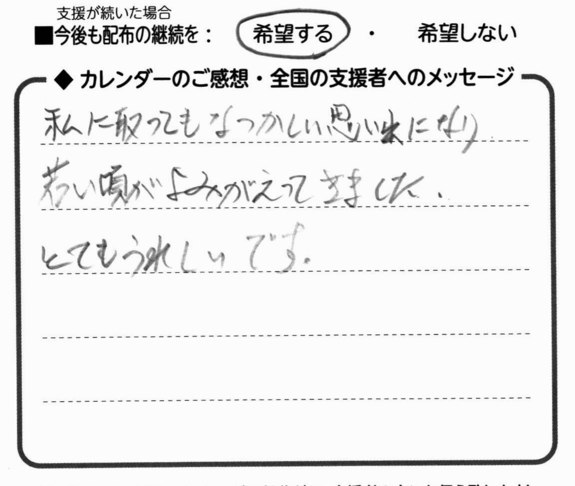 支援が続いた場合
■今後も配布の継続を： 希望する ・ 希望しない
◆ カレンダーのご感想・全国の支援者へのメッセージ
私に取ってもなつかしい思い出になり
若い頃がよみがえってきました.
とてもうれしいです.